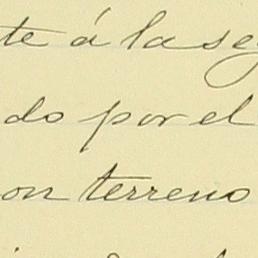 te á la seg
do por el
on terreno